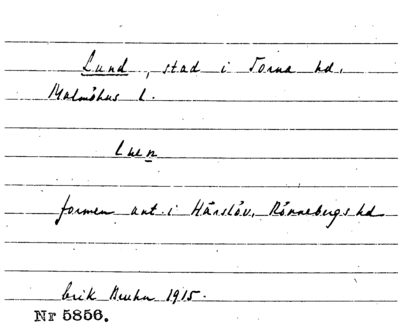 Lund, stad i Torna hd.
Malmöhus l.
Luen
formen ant. i Härslöv, Rönnebergs hd
Erik Bruhn 1915.
Nr 5856.